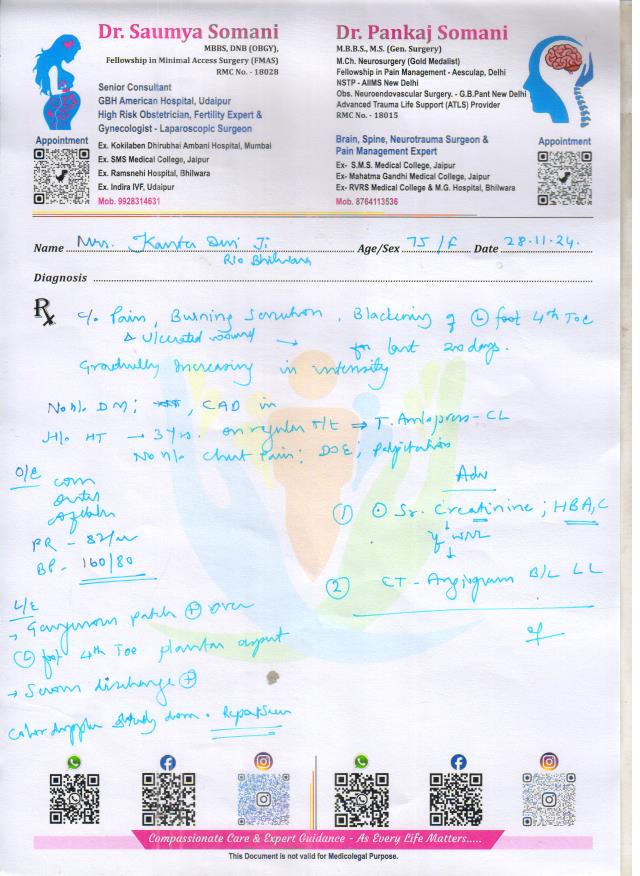 Dr. Saumya Somani
MBBS, DNB (OBGY),
Fellowship in Minimal Access Surgery (FMAS)
RMC No. - 18028
Senior Consultant
GBH American Hospital, Udaipur
High Risk Obstetrician, Fertility Expert &
Gynecologist - Laparoscopic Surgeon
Ex. Kokilaben Dhirubhai Ambani Hospital, Mumbai
Ex. SMS Medical College, Jaipur
Ex. Ramsnehi Hospital, Bhilwara
Ex. Indira IVF, Udaipur
Mob. 9928314631
Appointment
Dr. Pankaj Somani
M.B.B.S., M.S. (Gen. Surgery)
M.Ch. Neurosurgery (Gold Medalist)
Fellowship in Pain Management - Aesculap, Delhi
NSTP - AIIMS New Delhi
Obs. Neuroendovascular Surgery. - G.B.Pant New Delhi
Advanced Trauma Life Support (ATLS) Provider
RMC No. - 18015
Brain, Spine, Neurotrauma Surgeon &
Pain Management Expert
Ex- S.M.S. Medical College, Jaipur
Ex- Mahatma Gandhi Medical College, Jaipur
Ex- RVRS Medical College & M.G. Hospital, Bhilwara
Mob. 8764113536
Appointment
Name Mrs. Kanta Devi Ji Age/Sex 75/F Date 28.11.24.
R/o Bhilwara
Diagnosis
Rx
c/o Pain, Burning Sensation, Blackening of (L) foot 4th Toe
& Ulcerated wound → for last 20 days.
Gradually Increasing in intensity
No h/o DM; CAD
H/o HT → 3 yrs. on regular T/t ⇒ T. Amlopress-CL
No h/o Chest Pain; DOE; palpitations
O/E
PR - 82/
BP - 160/80
Adv
① Sr. Creatinine; HBA1C
↓
if WNL
↓
② CT-Angiogram B/L LL
L/E
→ Gangrenous patch ⊕ over
(L) foot 4th Toe plantar aspect
→ Serous discharge ⊕
Color doppler study done. Report seen
Compassionate Care & Expert Guidance - As Every Life Matters.....
This Document is not valid for Medicolegal Purpose.